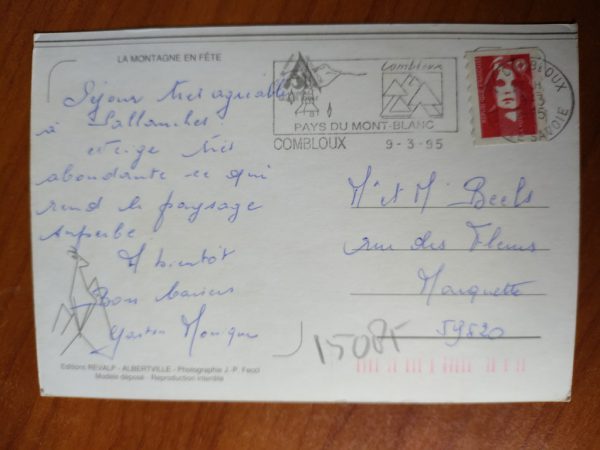 LA MONTAGNE EN FÊTE
Séjour très agréable
à Sallanches.
neige très
abondante ce qui
rend le paysage
superbe
A bientôt
Bons baisers
Gaston Monique
Editions REVALP - ALBERTVILLE - Photographie J.-P.
Modèle déposé - Reproduction interdite
Combloux
PAYS DU MONT-BLANC
COMBLOUX 9-3-95
COMBLOUX
SAVOIE
Mr et Me Beels
rue des Fleurs
Marquette
59520
15085